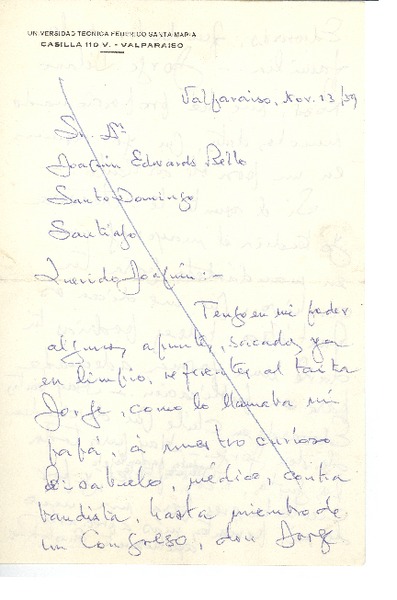 UNIVERSIDAD TECNICA FEDERICO SANTA MARIA
CASILLA 110 V. - VALPARAISO
Valparaiso, Nov. 13/59
Sr. Dn
Joaquin Edwards Bello
Santo Domingo
Santiago
Querido Joaquin:-
Tengo en mi poder
algunos apuntes, sacados ya
en limpio, referentes al taita
Jorge, como lo llamaba mi
papá, á nuestro curioso
bisabuelo, médico, contra
bandista, hasta miembro de
un Congreso, don Jorge